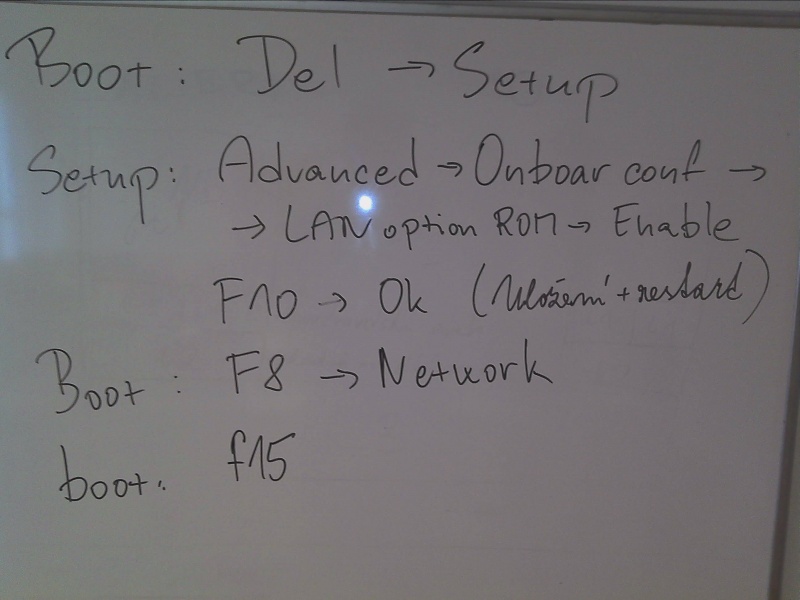 Boot: Del → Setup
Setup: Advanced → Onboar conf →
→ LAN option ROM → Enable
F10 → Ok (Uložení + restart)
Boot: F8 → Network
boot: f15